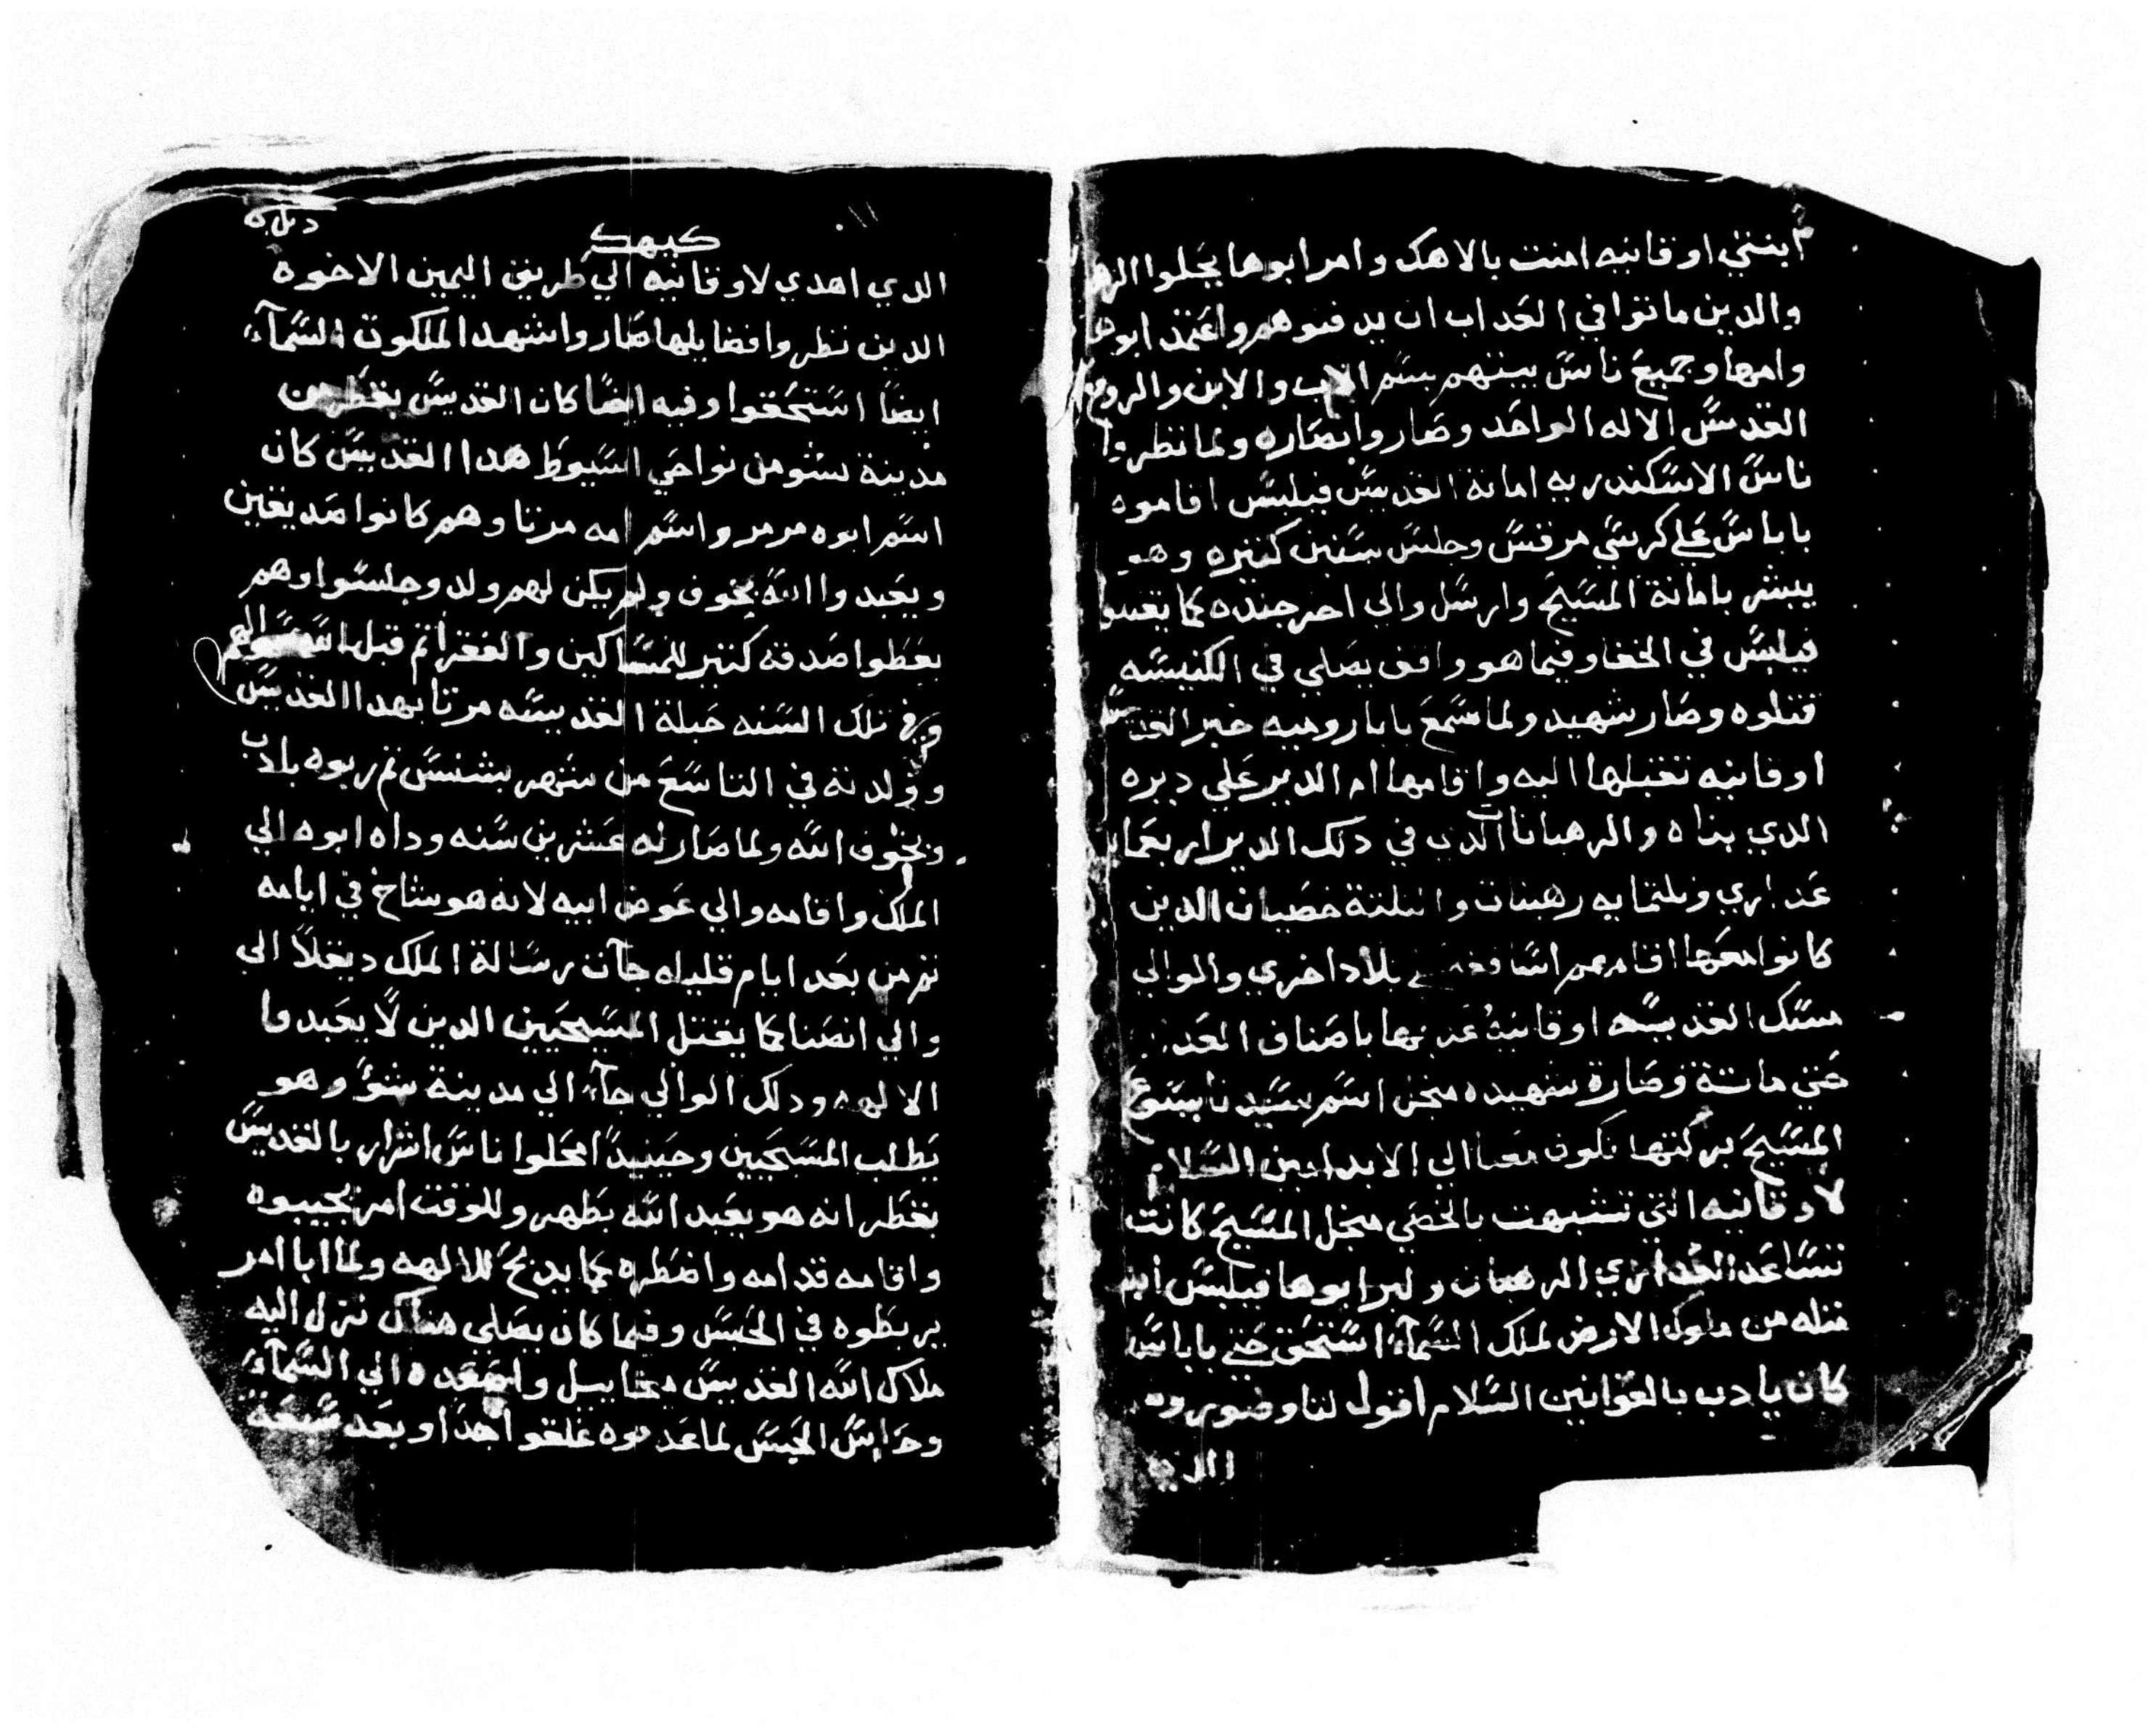 ابنتي اوقانيه امنت بالاهك وامر ابوها يحلوا
والدين ماتوا في العداب ان يدفنوهم واعتمد ابوها
وامها وجميع ناس بيتهم بسم الاب والابن والروح
القدس الاله الواحد وصاروا نصاره ولما نظروا
ناس الاسكندريه امانة القديس فيلبس اقاموه
باباس علي كرسي مرقس وجلس سنين كتيره وهو
يبشر بامانة المسيح وارسل والي اخر جنده كما يقتلوا
فيلبس في الخفا وفيما هو واقف يصلي في الكنيسه
قتلوه وصار شهيد ولما سمع بابا روميه خبر القديسه
اوقانيه تقبلها اليه واقامها ام الدير علي ديره
الدي بناه والرهبانات الدي في دلك الدير اربعمايه
عداري وتلتمايه رهبنات والتلتة خصيان الدين
كانوا معها اقامهم اساقفه بلاد اخري والوالي
مسك القديسه اوقانيه عدبها باصناف العداب
حتي ماتة وصارة شهيده منجل اسم سيدنا يسوع
المسيح بركتها تكون معنا الي الابد امين السلام
لاوقانيه التي تشبهت بالخصي منجل المسيح كانت
تساعد العداري الرهبان ولبر ابوها فيلبس
نقله من ملوك الارض لملك السماء استحق حتي باباس
كان يادب بالقوانين السلام اقول لنا وضويروه
الدي
كيهك
الدي اهدي لاوقانيه الي طريق اليمين الاخوه
الدين نظروا فضايلها صاروا شهدا لملكوت السماء
ايضا استحقوا وفيه ايضا كان القديس بقطر من
مدينة سئو من نواحي اسيوط هدا القديس كان
اسم ابوه مرمر واسم امه مرتا وهم كانوا صديقين
ويعبدوا الله بخوف ولم يكن لهم ولد وجلسوا وهم
يعطوا صدقه كتير للمساكين والفقرا تم قبل الله سوالهم
وفي تلك السنه حبلة القديسه مرتا بهدا القديس
وولدته في التاسع من شهر بشنس تم ربوه بادب
وبخوف الله ولما صار له عشرين سنه وداه ابوه الي
الملك واقامه والي عوض ابيه لانه هو شاخ في ايامه
تم من بعد ايام قليله جآت رسالة الملك ديقلاا الي
والي انصنا كما يقتل المسيحيين الدين لا يعبدوا
الالهه ودلك الوالي جآء الي مدينة شئو وهو
يطلب المسيحيين وحينيدا امحلوا ناس اشرار بالقديس
بقطر انه هو يعبد الله بطهر وللوقت امر يجيبوه
واقامه قدامه واضطره كما يدبح للالهه ولما ابا امر
يربطوه في الحبس وفيما كان يصلي هناك نزل اليه
ملاك الله القديس ميخاييل واصعده الي السماء
وحراس الحبس لما عدموه علقوا جدا وبعد سبعة